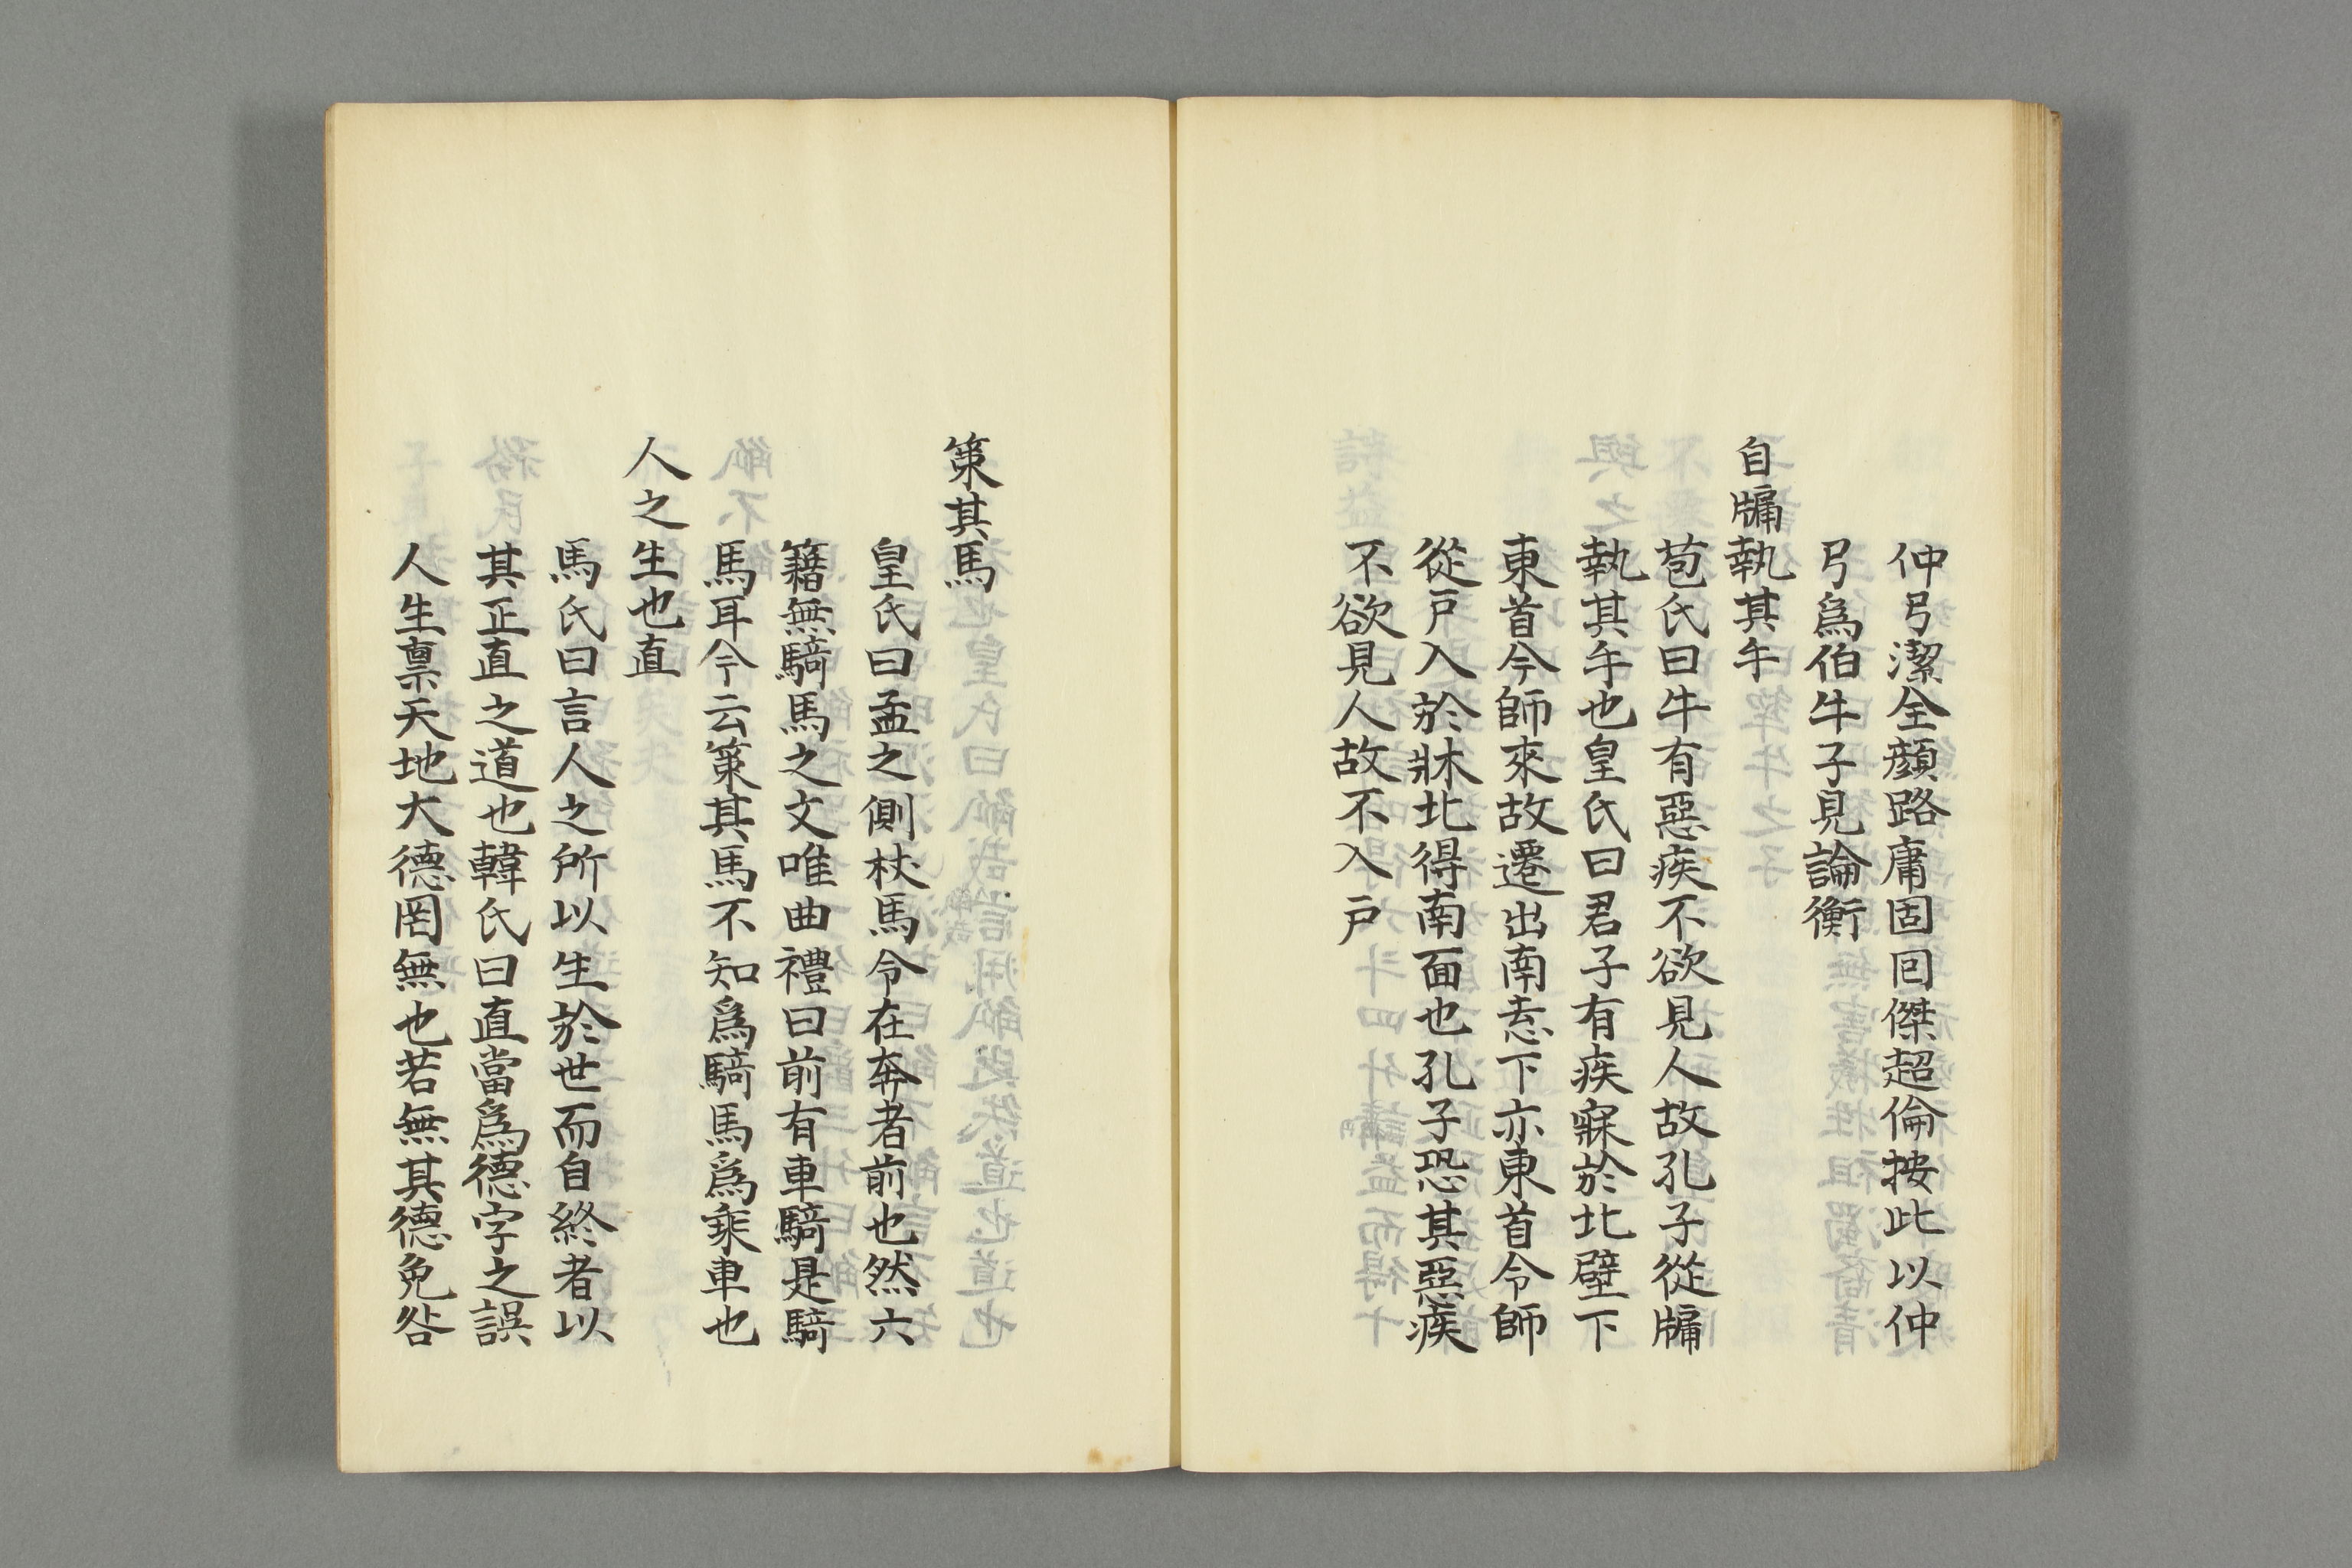 仲弓潔全顔路庸固回傑超倫按此以仲
弓爲伯牛子見論衡
自牖執其手
苞氏曰牛有惡疾不欲見人故孔子從牖
執其手也皇氏曰君子有疾寐於北壁下
東首今師來故遷出南窓下亦東首令師
從戸入於牀北得南面也孔子恐其惡疾
不欲見人故不入戸
策其馬
皇氏曰孟之側杖馬令在奔者前也然六
籍無騎馬之文唯曲禮曰前有車騎是騎
馬耳今云策其馬不知爲騎馬爲乘車也
人之生也直
馬氏曰言人之所以生於世而自終者以
其正直之道也韓氏曰直當爲德字之誤
人生禀天地大德罔無也若無其德免咎